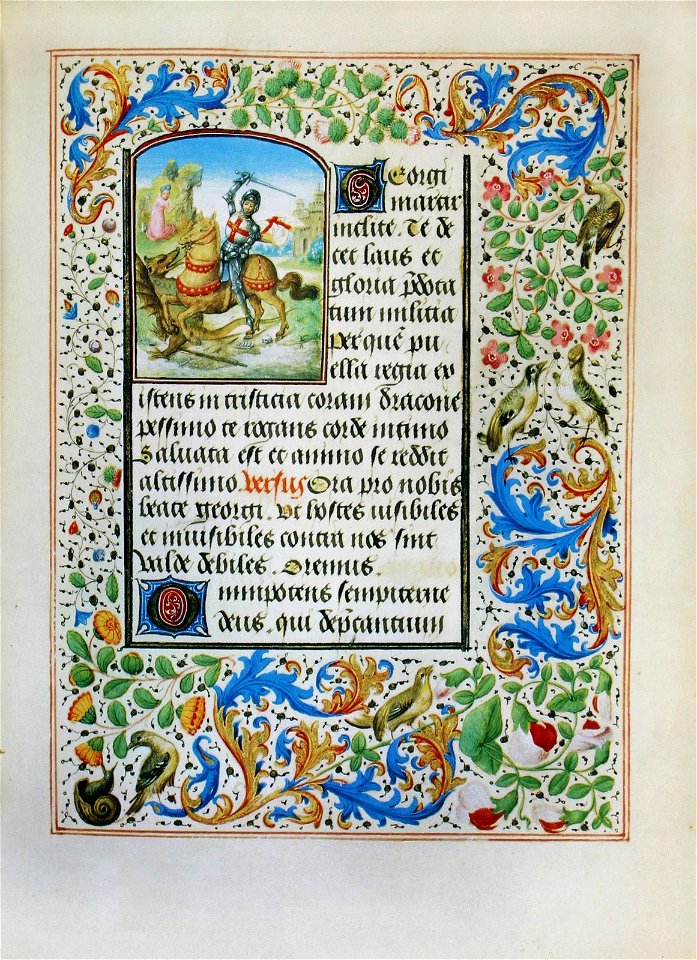 Georgi
martir
inclite. Te de
cet laus et
gloria p̄dota
tum militia
Per quē pu
ella regia ex
istens in tristicia coram dracone
pessimo te rogans corde intimo
Saluata est et animo se reddit
altissimo Versus Ora pro nobis
beate georgi. Ut hostes uisibiles
et inuisibiles contra nos sint
valde debiles. Oremus.
Omnipotens sempiterne
deus. qui dep̄cantium